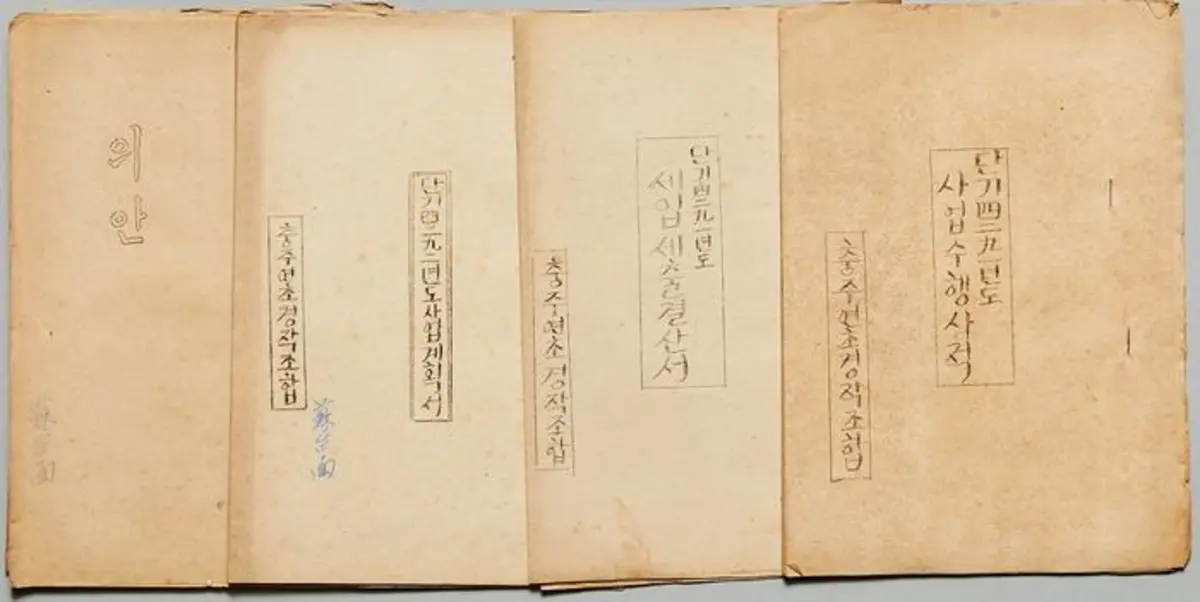 단기四二九一년도
사업수행사적
충주연초경작조합
단기四二九一년도
세입세출결산서
충주연초경작조합
단기四二九二년도사업계획서
蘇台面
충주연초경작조합
의안
蘇台面